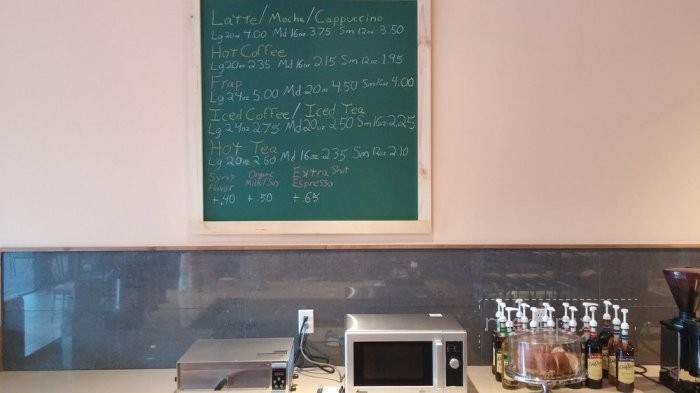 Latte/Mocha/Cappuccino
Lg 20oz 4.00 Md 16oz 3.75 Sm 12oz 3.50
Hot Coffee
Lg 20oz 2.35 Md 16oz 2.15 Sm 12oz 1.95
Frap
Lg 24oz 5.00 Md 20oz 4.50 Sm 16oz 4.00
Iced Coffee/Iced Tea
Lg 24oz 2.75 Md 20oz 2.50 Sm 16oz 2.25
Hot Tea
Lg 20oz 2.60 Md 16oz 2.35 Sm 12oz 2.10
Syrup Organic Extra Shot
Flavor Milk/Soy Espresso
+.40 +.50 +.65